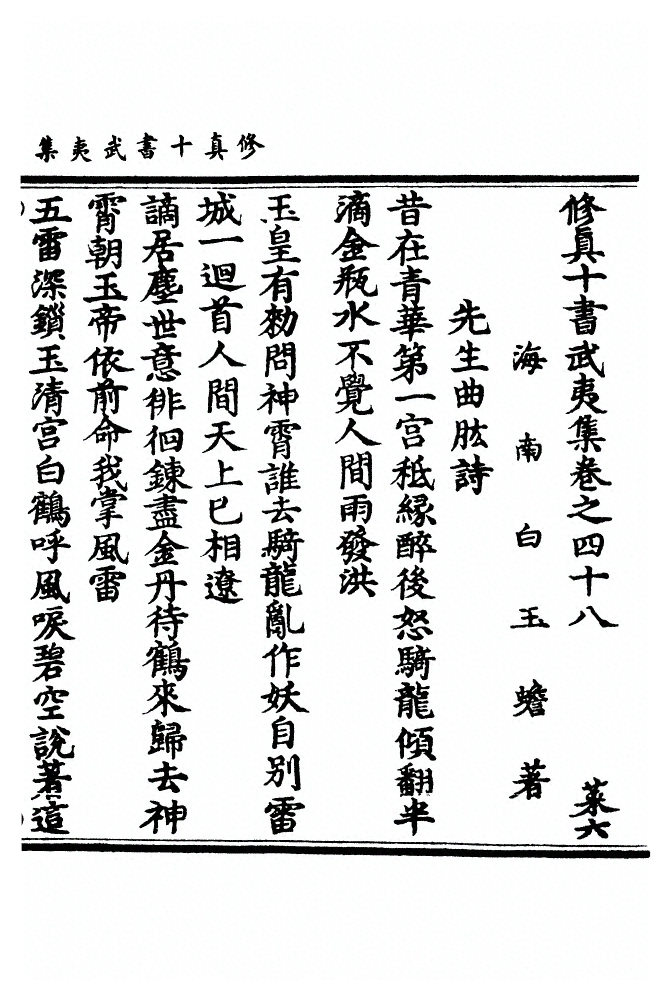 修真十書武夷集
修眞十書武夷集卷之四十八 菜六
海南白玉蟾著
先生曲肱詩
昔在青華第一宮秪緣醉後怒騎龍傾翻半
滴金瓶水不覺人間雨發洪
玉皇有勑問神霄誰去騎龍亂作妖自別雷
城一迴首人間天上已相遼
謫居塵世意徘徊鍊盡金丹待鶴來歸去神
霄朝玉帝依前命我掌風雷
五雷深鎖玉清宮白鶴呼風唳碧空說著這